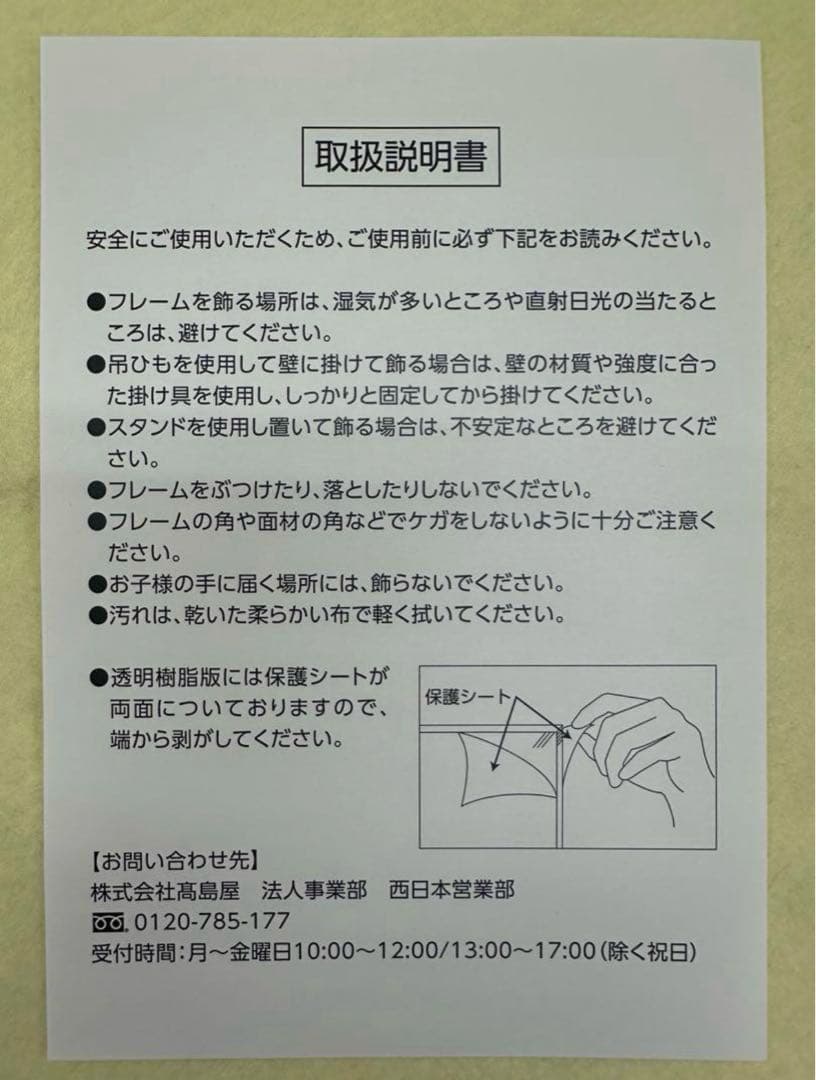 取扱説明書
安全にご使用いただくため、ご使用前に必ず下記をお読みください。
●フレームを飾る場所は、湿気が多いところや直射日光の当たると
ころは、避けてください。
●吊ひもを使用して壁に掛けて飾る場合は、壁の材質や強度に合っ
た掛け具を使用し、しっかりと固定してから掛けてください。
●スタンドを使用し置いて飾る場合は、不安定なところを避けてくだ
さい。
●フレームをぶつけたり、落としたりしないでください。
●フレームの角や面材の角などでケガをしないように十分ご注意く
ださい。
●お子様の手に届く場所には、飾らないでください。
●汚れは、乾いた柔らかい布で軽く拭いてください。
●透明樹脂版には保護シートが
両面についておりますので、
端から剥がしてください。
保護シート
【お問い合わせ先】
株式会社髙島屋 法人事業部 西日本営業部
0120-785-177
受付時間：月〜金曜日10:00〜12:00/13:00〜17:00（除く祝日）